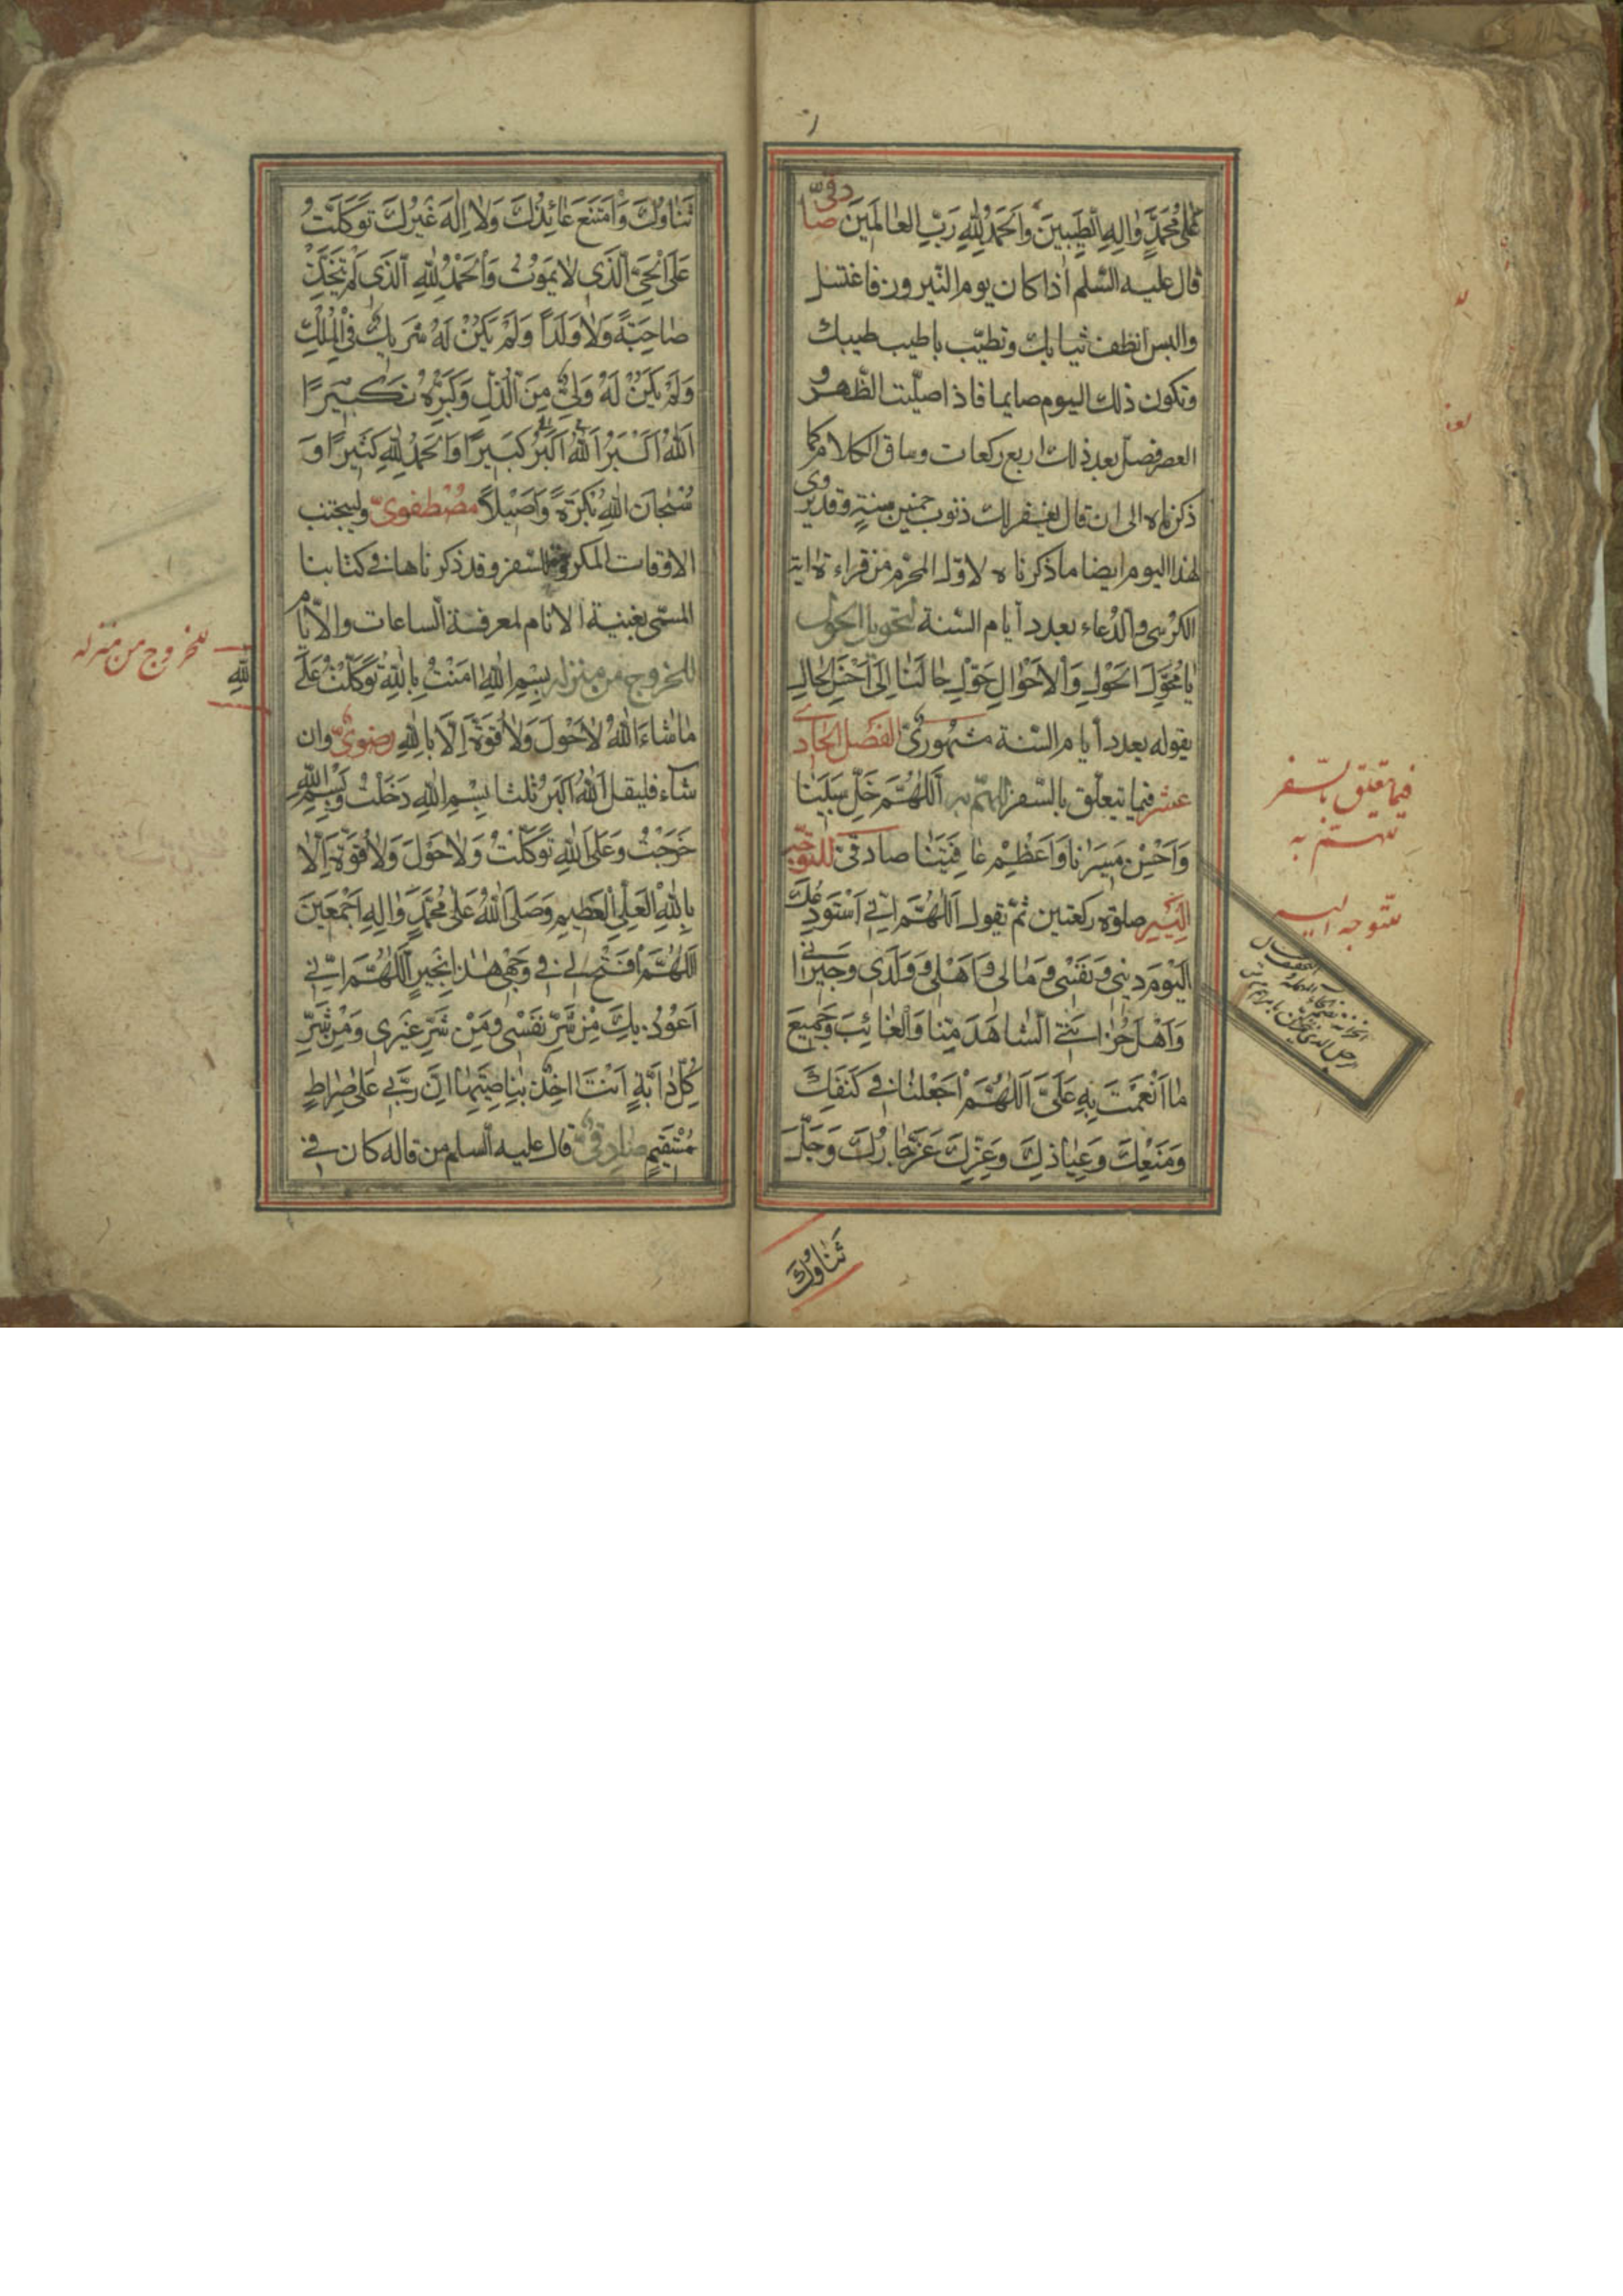 عَلىٰ مُحَمَّدٍ وَّاٰلِهِ الطَّيِّبِينَ وَاَلْحَمْدُ لِلّٰهِ رَبِّ العٰالَمِيَن صادقىّ
قال عليه السّلم اذا كان يوم النّيروز فاغتسل
والبس انظف ثيابك وتطيّب باطيب طيبك
وتكون ذلك اليوم صايما فاذا صلّيت الظّهر و
العصر فصلّ بعد ذلك اربع ركعات وساق الكلام كما
ذكرناه الى ان قال يغفر لك ذنوب خمسين سنةٍ وقد يروى
لهذا اليوم ايضا ما ذكرناه لاوّل المحرّم من قراءة اٰية
الكرسى والدّعاء بعدد أيام السّنة لتحويل الحول
يٰا مُحَوِّلَ الحَوْلِ وَاْلاَحْوٰالِ حَوِّلْ حٰالَنٰا اِلىٰ اَحْسَنِ الحٰالِ
يقوله بعدد أيام السّنة مشهورىّ الفصل الحادى
عشر فيما يتعلّق بالسّفر للهمّ به اَللّٰهُمَّ خَلِّ سَبيلَنٰا
وَاَحْسِنْ مَسيرَنٰا وَاَعْظِمْ عٰافِيَتَنٰا صادقىّ للتوجّه
اليه صلوة ركعتين ثمّ تقول اَللّٰهُمَّ اِنّى اَسْتَودِعُكَ
اَلْيَوْمَ دينى وَنَفْسى وَمٰالى وَاَهْلى وَوَلَدى وَجيرٰانى
وَاَهْلَ حُزٰانَتى اَلشّٰاهَدَ مِنّٰا وَاْلغٰائِبَ وَجَميعَ
مٰا اَنْعَمْتَ بِهِ عَلَىَّ اَللّٰهُمَّ اْجْعَلْنٰا فى كَنَفِكَ
وَمَنْعِكَ وَعِيٰاذِكَ وَعِزِّكَ عَزَّ جٰارُكَ وَجَلَّ
ثَنٰاؤُكَ
فيما يتعلق بالسّفر
للهمّ به
للتوجه اليه
ثَنٰاؤُكَ وَاْمْتَنَعَ عٰائِذُكَ وَلاٰ اِلٰهَ غَيْرُكَ تَوَكَّلْتُ
عَلَى اْلحَىِّ اَلَّذى لاٰ يَموُتُ وَاْلحَمْدُ لِلّٰهِ اَلَّذى لَمْ يَتَّخِذْ
صٰاحِبَةً وَلاٰ وَلَداً وَلَمْ يَكُنْ لَهُ شَريكٌ فىِ اْلمُلْكِ
وَلَمْ يَكُنْ لَهُ وَلىٌّ مِنَ اَلْذُّلِ وَكَبِّرْهُ تَكْبيرًا
اَللّٰهُ اَكْبَرُ اَللّٰهُ اَكْبَرُ كَبيرًا وَاْلحَمْدُ لِلّٰهِ كَثيرًا وَ
سُبْحٰانَ اللّٰهِ بُكْرَةً وَاَصيلاً مصْطفوىّ وليجتنب
الاوقات المكروهة للسّفر وقد ذكرناها فى كتابنا
المسمّى بغنية الانام لمعرفة السّاعات والايّام
للخروج من منزله بِسْمِ اللّٰهِ اٰمَنْتُ بِاللّٰهِ تَوَكَّلْتُ عَلَى
اللّٰهِ
مٰا شٰاءَ اللّٰهُ لاٰ حَوْلَ وَلاٰ قوَّةَ اِلّاٰ بِاللّٰهِ رضوىّ وان
شآء فليقل اَللّٰهُ اَكْبَرُ ثلثا بِسْمِ اللّٰهِ دَخَلْتُ وَبِسْمِ اللّٰهِ
خَرَجْتُ وَعَلَى اللّٰهِ تَوَكَّلْتُ وَلاٰ حَوْلَ وَلاٰ قُوَّةَ اِلّاٰ
بِاللّٰهِ الْعَلِىِّ الْعَظيمِ وَصَلَّى اللّٰهُ عَلىٰ مُحَمَّدٍ وَّاٰلِهِ اَجْمَعينَ
اَللّٰهُمَّ اْفْتَحْ لى فى وَجْهى هٰذٰا بِخَيرٍ اَللّٰهُمَّ اِنّى
اَعوُذُ بِكَ مِنْ شَرِّ نَفْسى وَمِنْ شَرِّ غَيْرى وَمِنْ شَرِّ
كُلِّ دٰابَّةٍ اَنْتَ اٰخِذٌ بِنٰاصِيَتِهٰا اِنَّ رَبّى عَلىٰ صِرٰاطٍ
مُسْتَقيمٍ صٰادِقىّ قال عليه السلم من قاله كان فى
للخروج من منزله